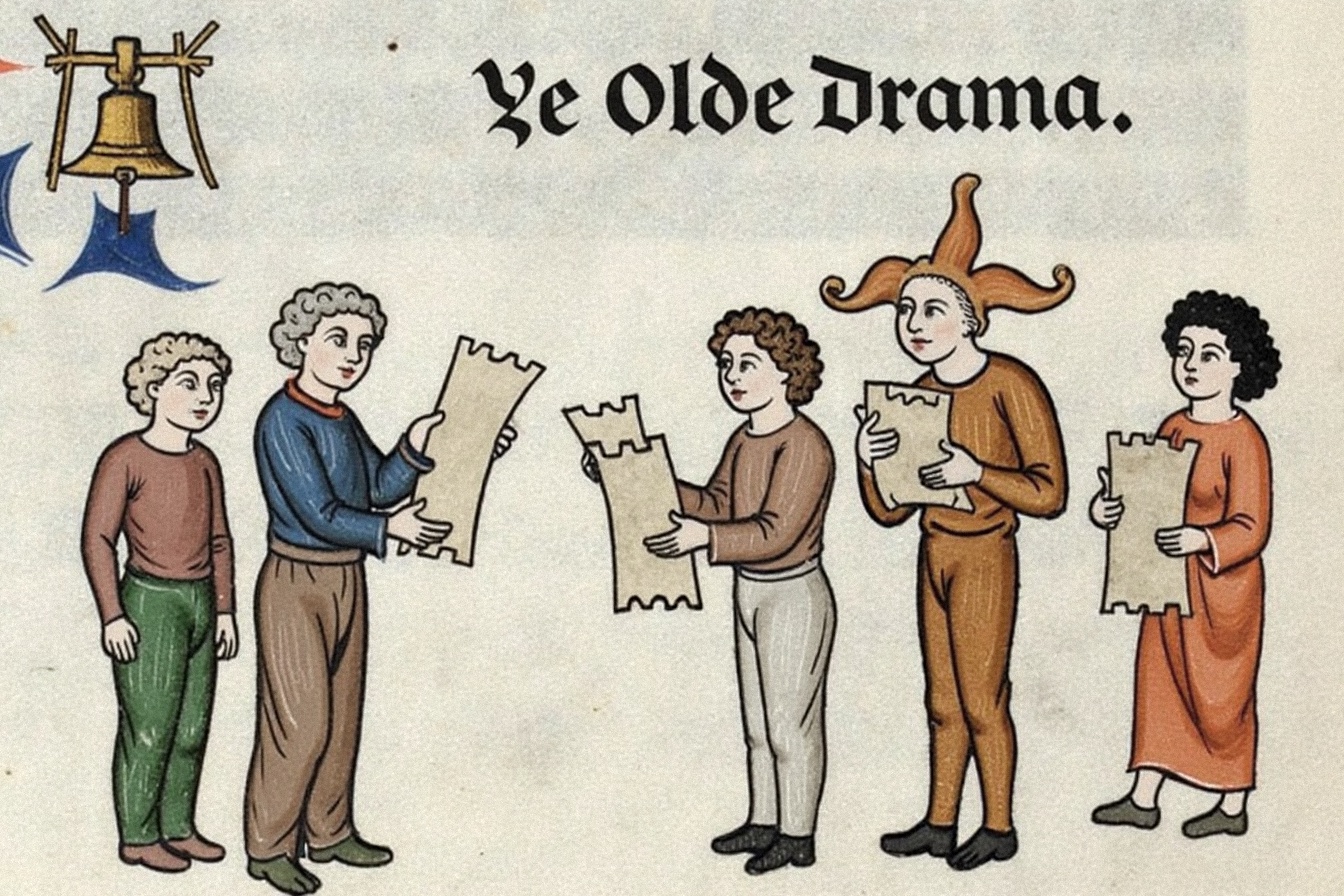 Ye Olde Drama.